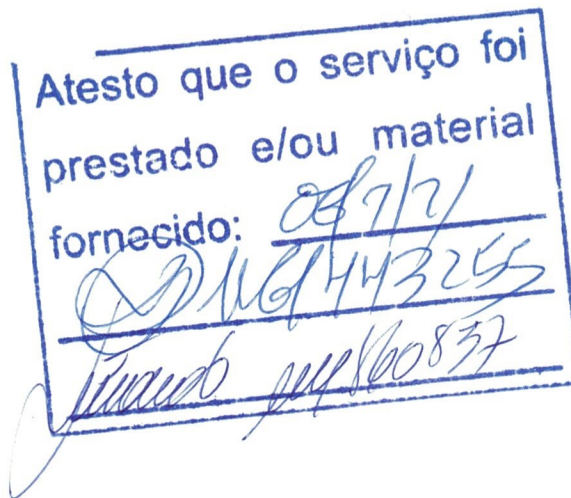 Atesto que o serviço foi
prestado e/ou material
fornecido: 08/7/21
443255
860837